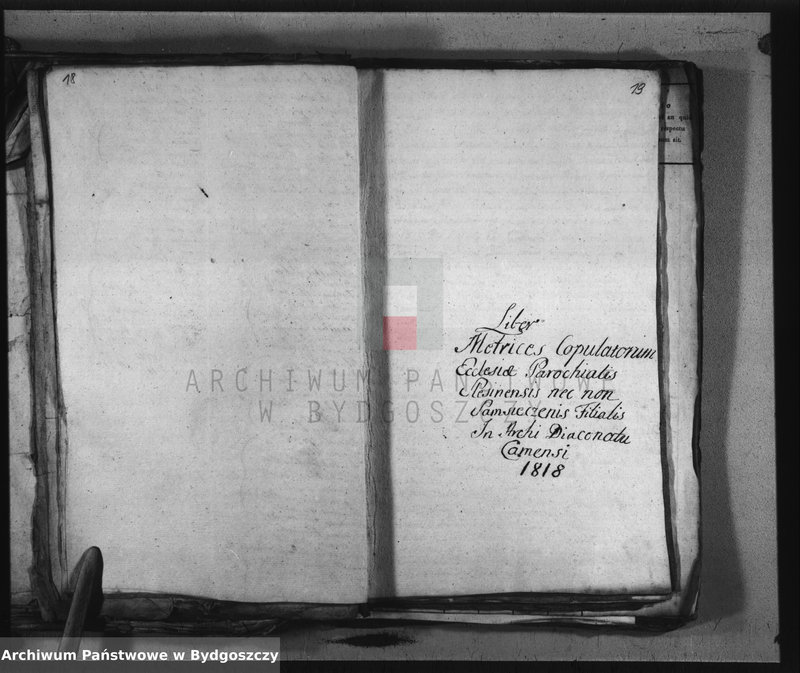 18
19
o
en qui
respectu
um sit.
Liber
Metrices Copulatorum
Ecclesiæ Parochialis
Plesinensis nec non
Samsieczenis Filialis
In Archi Diaconatu
Camensi
1818
ARCHIWUM PAŃSTWOWE
W BYDGOSZCZY
Archiwum Państwowe w Bydgoszczy